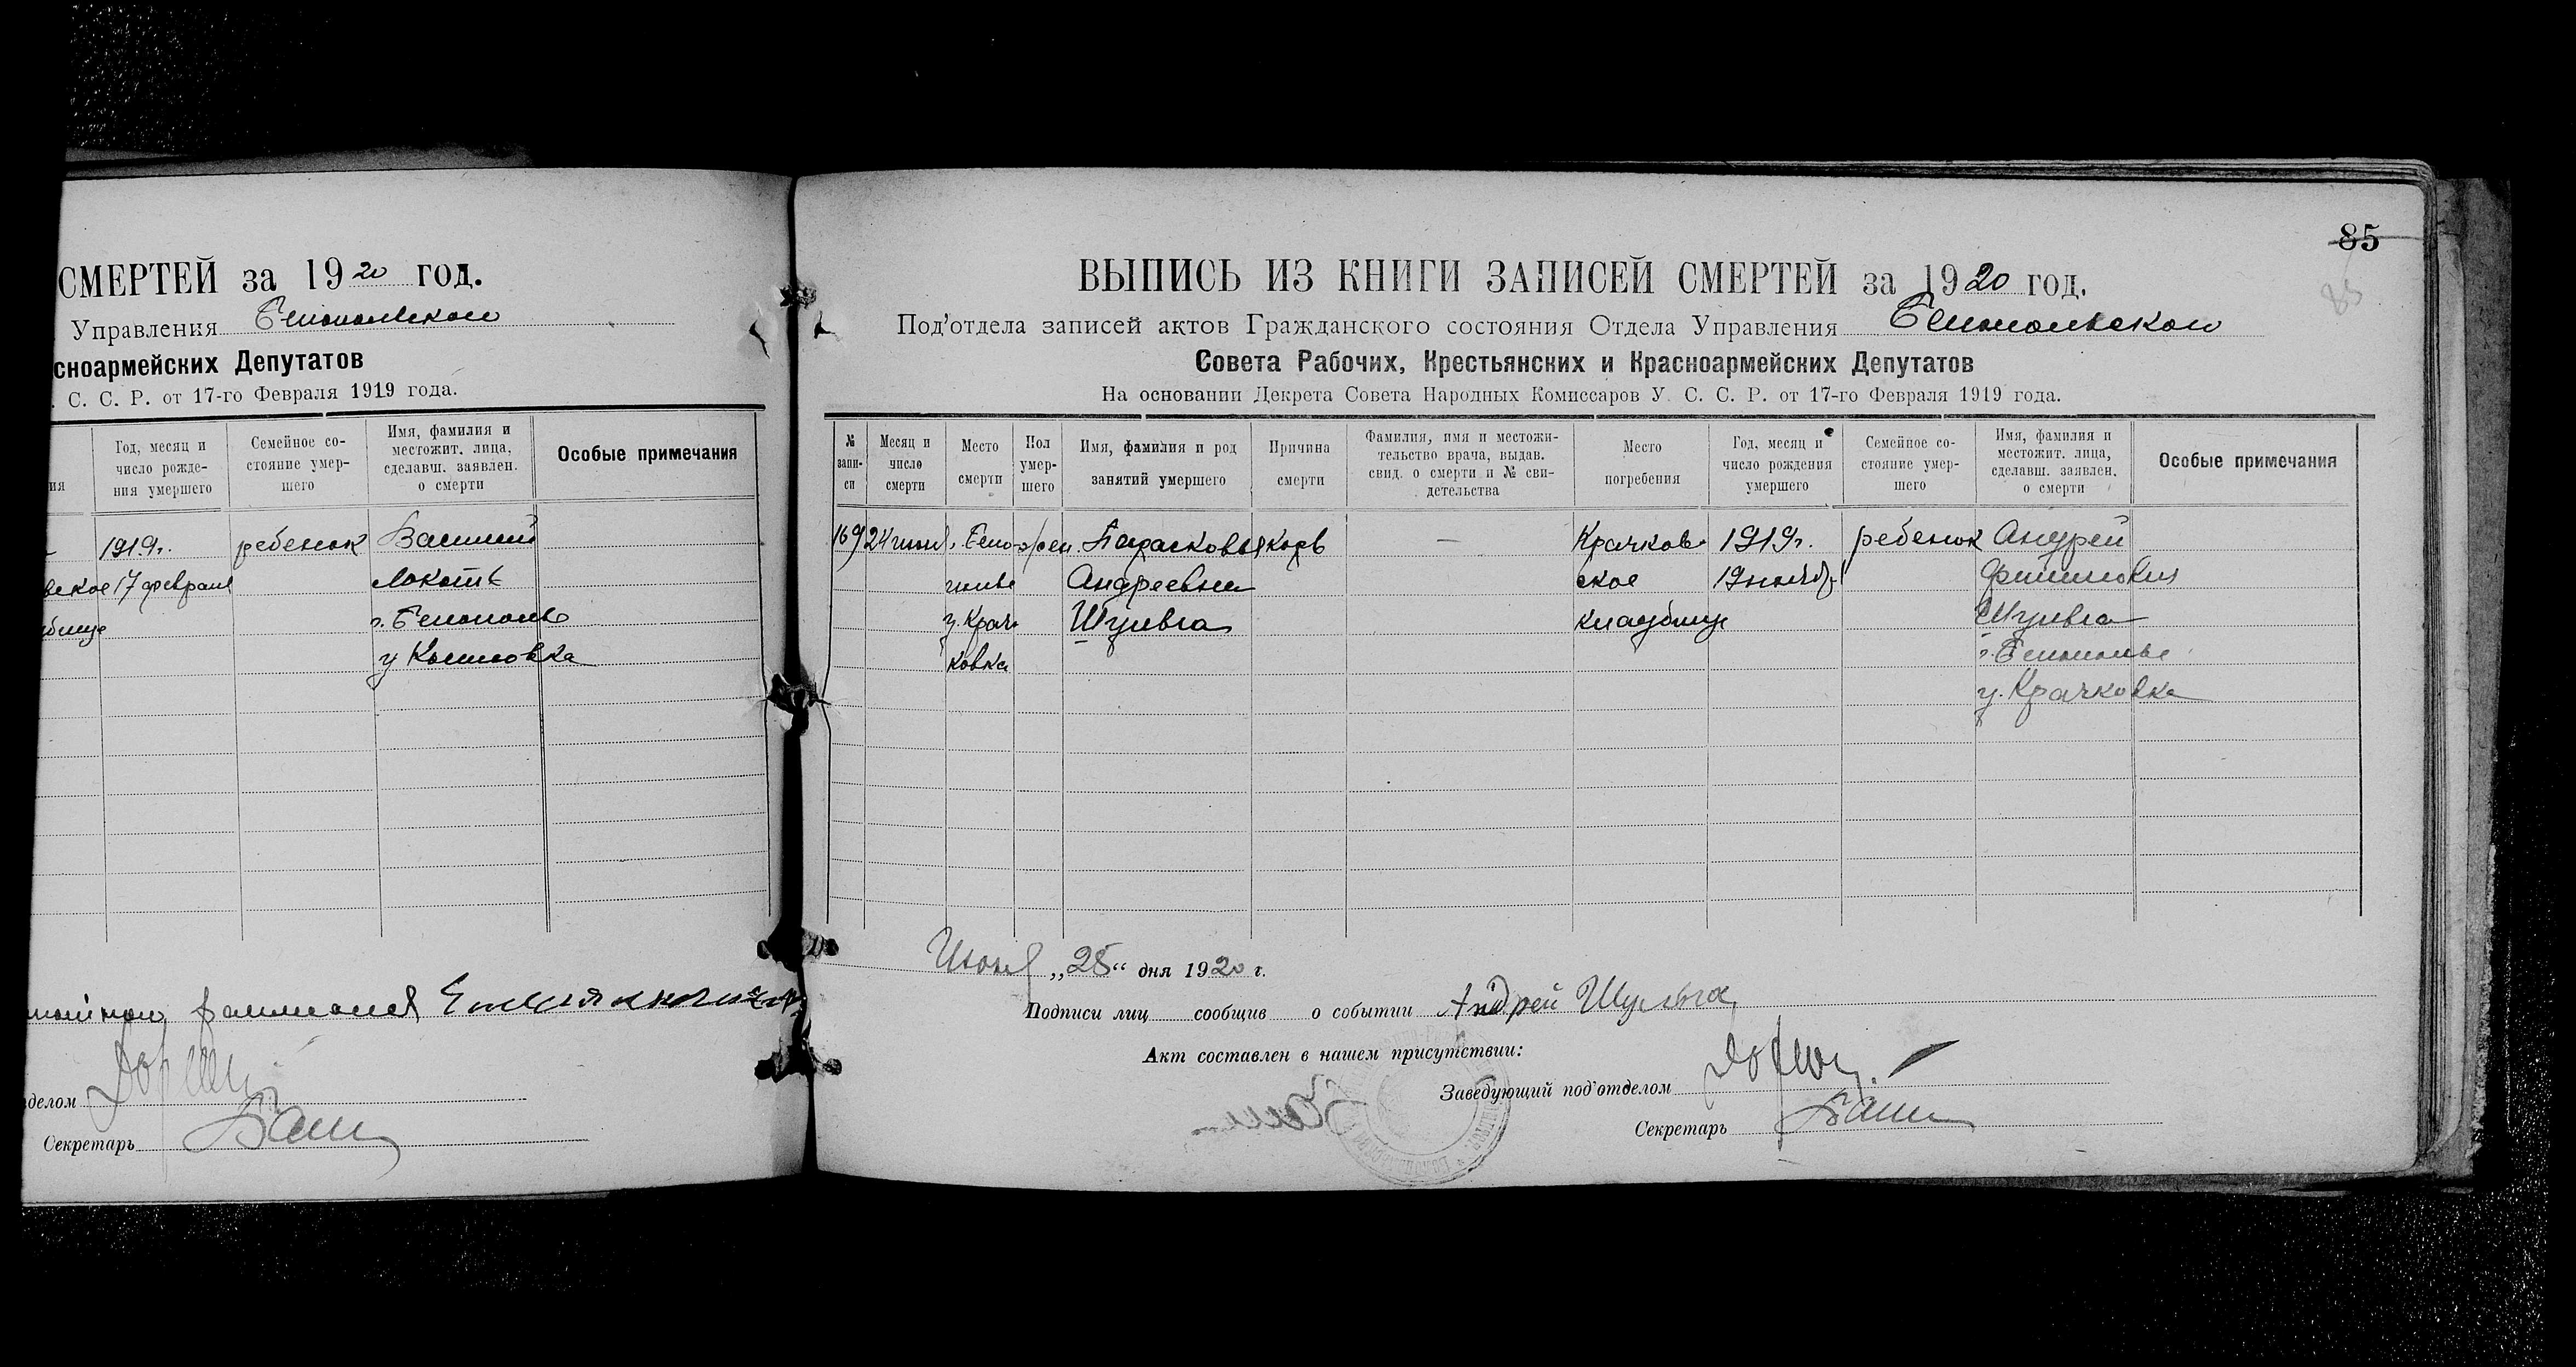 СМЕРТЕЙ за 1920 год.
Управления Белопольского
сноармейских Депутатов
. С. С. Р. от 17-го Февраля 1919 года.
ия
Год, месяц и число рожде- ния умершего
Семейное со- стояние умер- шего
Имя, фамилия и местожит. лица, сделавш. заявлен. о смерти
Особые примечания
1919г. ребенок Василий
вское 17 февраля Локоть
бище г. Белополье
у
делом
Секретарь
85
85
ВЫПИСЬ ИЗ КНИГИ ЗАПИСЕЙ СМЕРТЕЙ за 1920 год.
Под'отдела записей актов Гражданского состояния Отдела Управления Белопольского
Совета Рабочих, Крестьянских и Красноармейских Депутатов
На основании Декрета Совета Народных Комиссаров У. С. С. Р. от 17-го Февраля 1919 года.
№ запи- си
Месяц и число смерти
Место смерти
Пол умер- шего
Имя, фамилия и род занятий умершего
Причина смерти
Фамилия, имя и местожи- тельство врача, выдав. свид. о смерти и № сви- детельства
Место погребения
Год, месяц и число рождения умершего
Семейное со- стояние умер- шего
Имя, фамилия и местожит. лица, сделавш. заявлен. о смерти
Особые примечания
169 24 г. Бело- жен. Парасковья корь — Крачков- 1919г. ребенок Андрей
полье Андреевна ское 19
у. Крач- Шульга кладбище Шульга
ковка г. Белополье
у. Крачковка
Июня „25“ дня 1920 г.
Подписи лиц сообщив о событии Андрей Шульга
Акт составлен в нашем присутствии:
Заведующий под'отделом
Секретарь